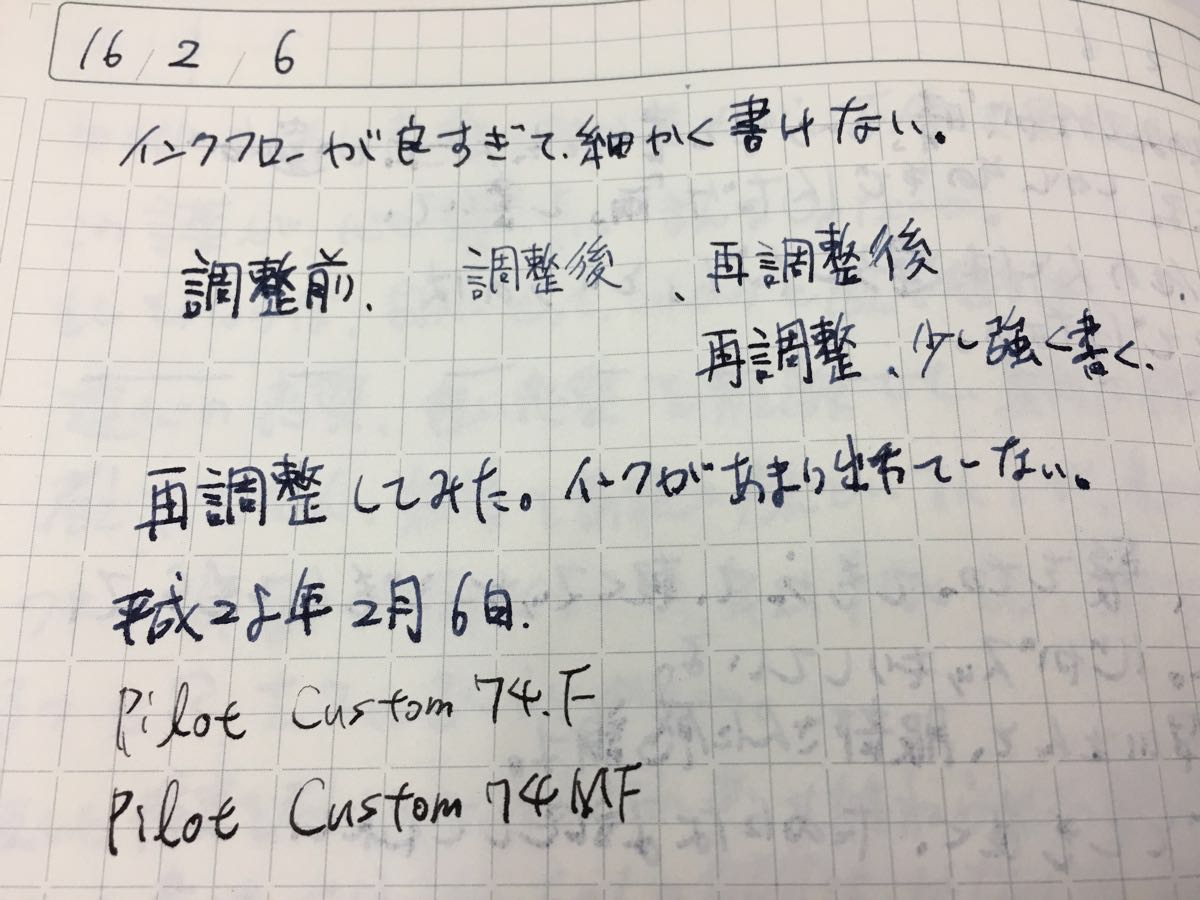 16/2/6
インクフローが良すぎて、細かく書けない。
調整前、調整後、再調整後
再調整、少し強く書く、
再調整してみた。インクがあまり出ない。
平成28年2月6日.
Pilot Custom 74.F
Pilot Custom 74MF